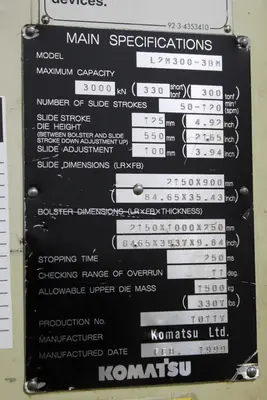 devices.
92-3-4353410
MAIN SPECIFICATIONS
MODEL L2M300-3BM
MAXIMUM CAPACITY
3000 kN ( 330 short/tonf ) ( 300 tonf )
NUMBER OF SLIDE STROKES 50-120 min⁻¹ (spm)
SLIDE STROKE 125 mm ( 4.92 inch)
DIE HEIGHT
(BETWEEN BOLSTER AND SLIDE
STROKE DOWN ADJUSTMENT UP) 550 mm ( 21.65 inch)
SLIDE ADJUSTMENT 100 mm ( 3.94 inch)
SLIDE DIMENSIONS (LR×FB)
2150X900 mm
( 84.65X35.43 inch)
BOLSTER DIMENSIONS (LR×FB×THICKNESS)
2150X1000X250 mm
( 84.65X39.37X9.84 inch)
STOPPING TIME 250 ms
CHECKING RANGE OF OVERRUN 11 °
ALLOWABLE UPPER DIE MASS 1500 kg
( 3307 lbs)
PRODUCTION No.
MANUFACTURER Komatsu Ltd.
MANUFACTURED DATE 1999
KOMATSU